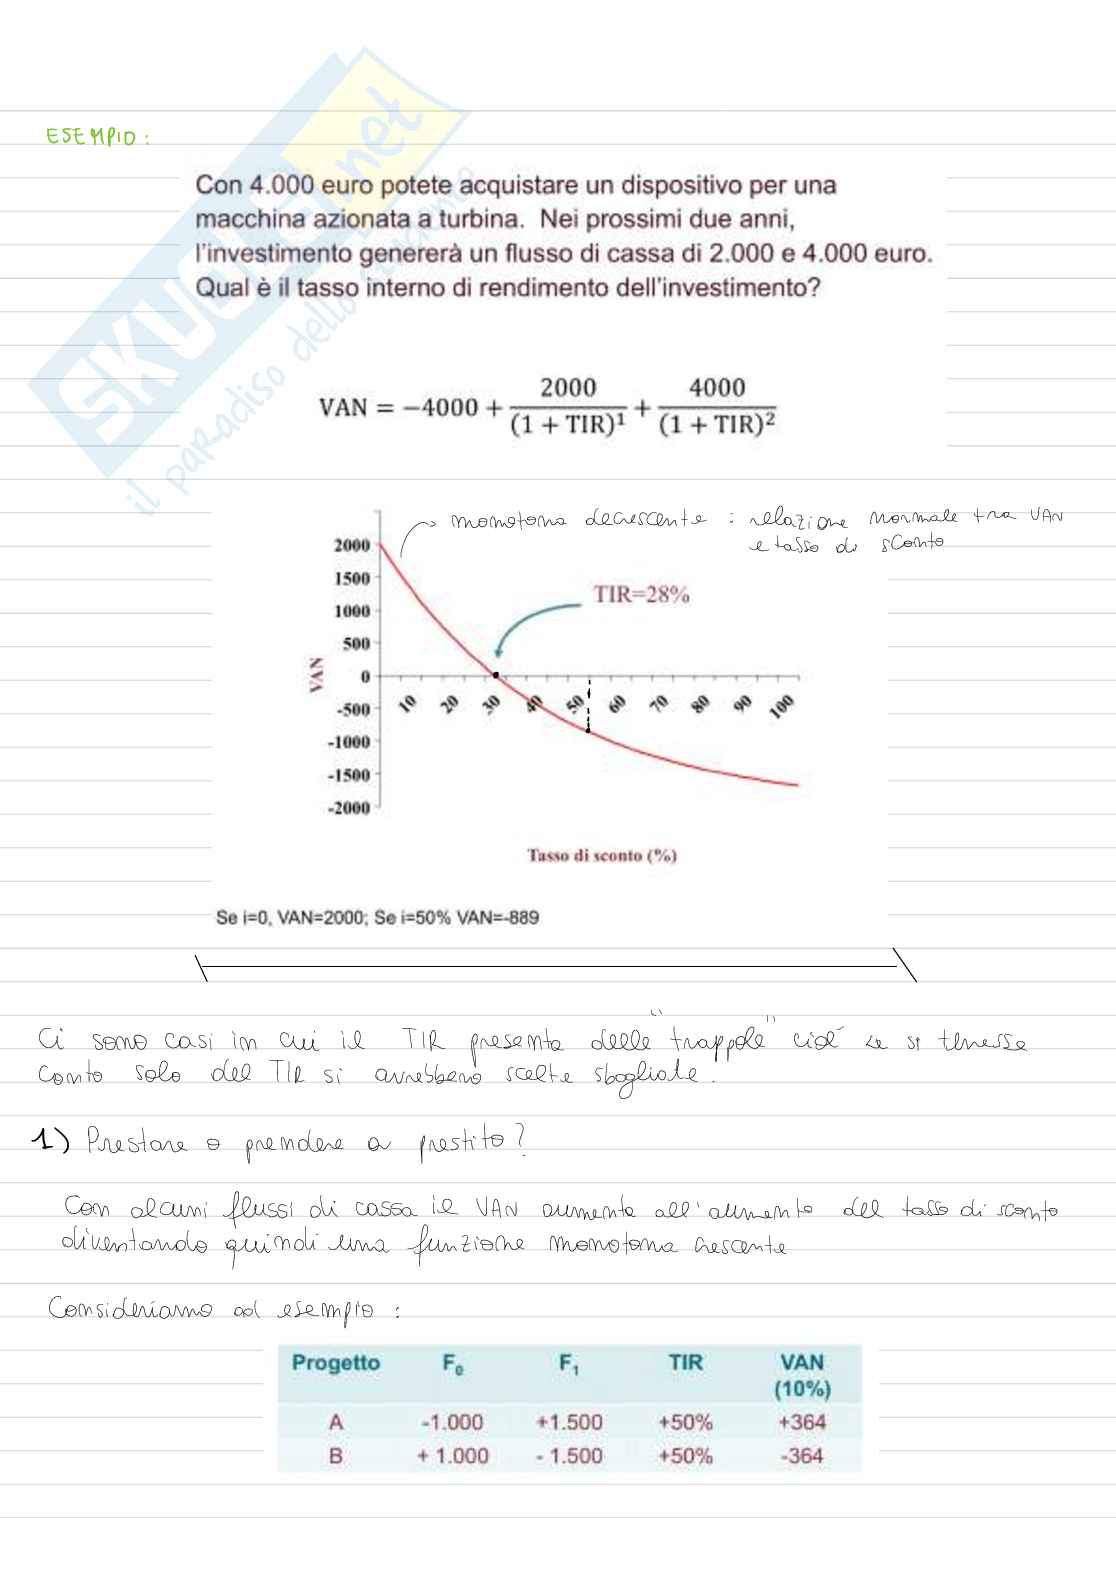 ESEMPIO:
Con 4.000 euro potete acquistare un dispositivo per una
macchina azionata a turbina. Nei prossimi due anni,
l'investimento genererà un flusso di cassa di 2.000 e 4.000 euro.
Qual è il tasso interno di rendimento dell'investimento?
SKUOLA.net
il paradiso dello studente
VAN = −4000 + 2000/(1 + TIR)¹ + 4000/(1 + TIR)²
monotona decrescente : relazione normale tra VAN
e tasso di sconto
TIR=28%
VAN
2000
1500
1000
500
0
-500
-1000
-1500
-2000
10 20 30 40 50 60 70 80 90 100
Tasso di sconto (%)
Se i=0, VAN=2000; Se i=50% VAN=-889
Ci sono casi in cui il TIR presenta delle "trappole" cioè se si tenesse
conto solo del TIR si avrebbero scelte sbagliate.
1) Prestare o prendere a prestito?
Con alcuni flussi di cassa il VAN aumenta all'aumento del tasso di sconto
diventando quindi una funzione monotona crescente
Consideriamo ad esempio :
Progetto F₀ F₁ TIR VAN
(10%)
A -1.000 +1.500 +50% +364
B + 1.000 - 1.500 +50% -364